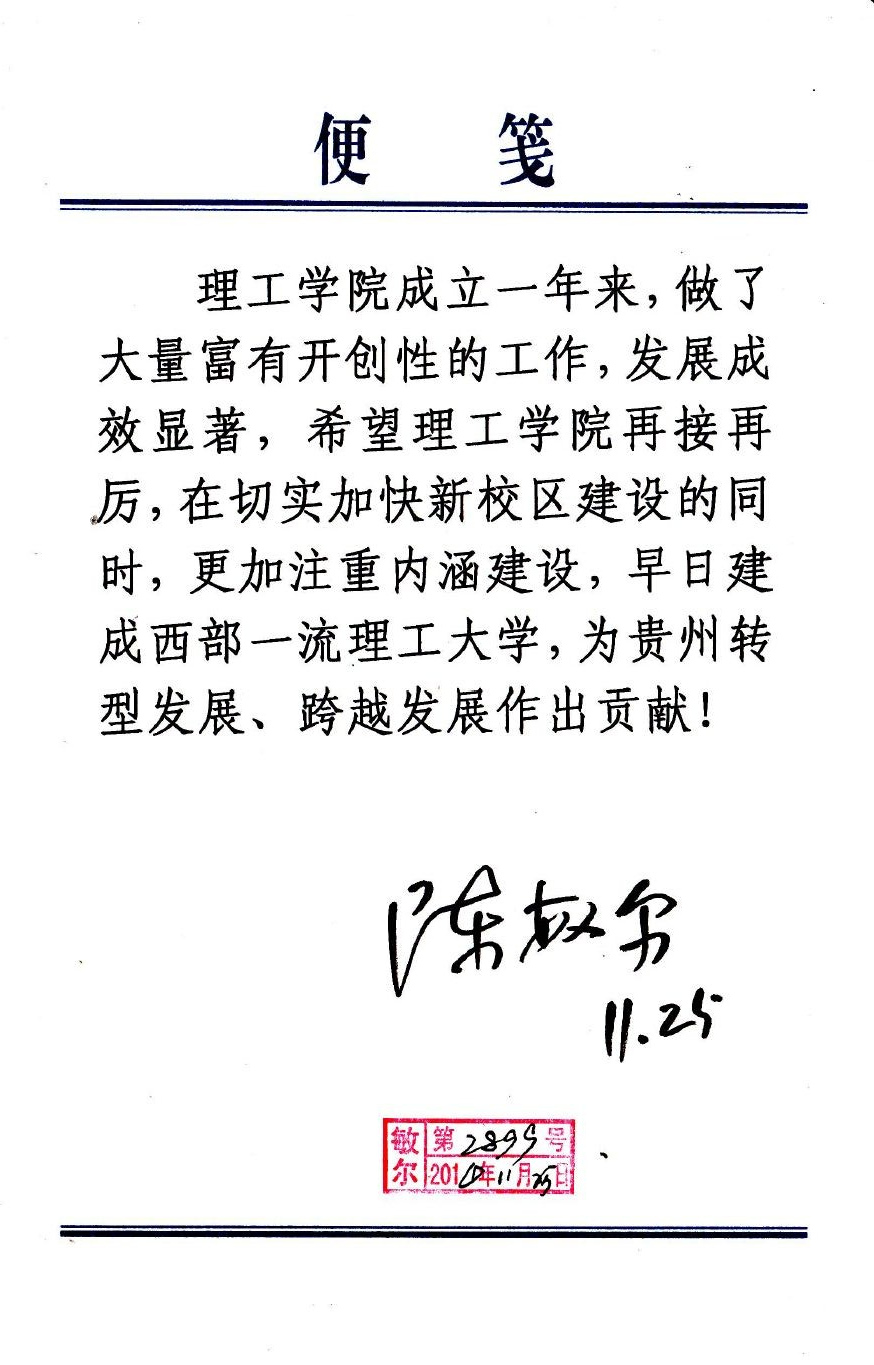 便 笺
理工学院成立一年来，做了
大量富有开创性的工作，发展成
效显著，希望理工学院再接再
厉，在切实加快新校区建设的同
时，更加注重内涵建设，早日建
成西部一流理工大学，为贵州转
型发展、跨越发展作出贡献！
陈敏尔
11.25
敏尔
第2899号
2014年11月25日